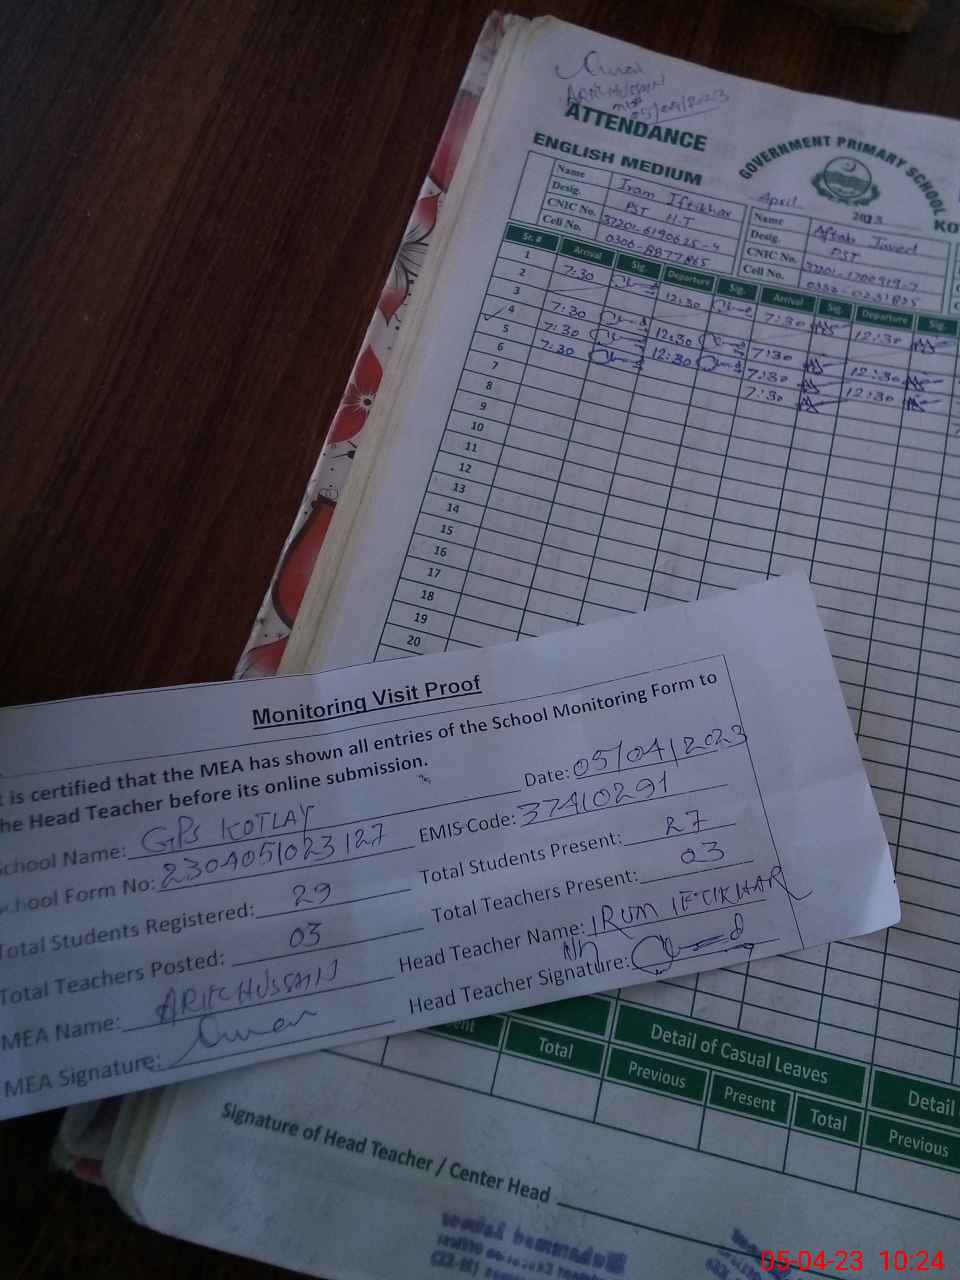 ARIF HUSSAIN
MEA
05/04/2023
ATTENDANCE
ENGLISH MEDIUM
GOVERNMENT PRIMARY SCHOOL
KO
April 2023
Name Iram Iftikhar
Desig. PST H.T
CNIC No. 37201-6190625-4
Cell No. 0306-8877865
Name Aftab Javed
Desig. PST
CNIC No.
Cell No.
Sr. # Arrival Sig. Departure Sig. Arrival Sig. Departure Sig.
1 7:30 12:30 7:30 12:30
2
3 7:30 12:30 7:30 12:30
4 7:30 12:30 7:30 12:30
5 7:30 7:30
6
7
8
9
10
11
12
13
14
15
16
17
18
19
20
Monitoring Visit Proof
t is certified that the MEA has shown all entries of the School Monitoring Form to
he Head Teacher before its online submission.
Date: 05/04/2023
chool Name: GPS KOTLAY
EMIS Code: 37410291
chool Form No: 2304051023127
Total Students Present: 27
Total Students Registered: 29
Total Teachers Present: 03
Total Teachers Posted: 03
Head Teacher Name: IRUM IFTIKHAR
MEA Name: ARIF HUSSAIN
Head Teacher Signature:
MEA Signature:
ent Total
Detail of Casual Leaves
Previous Present Total
Detail
Previous
Signature of Head Teacher / Center Head
05-04-23 10:24